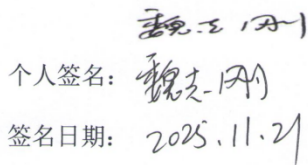 魏志刚
个人签名：魏志刚
签名日期：2025.11.21